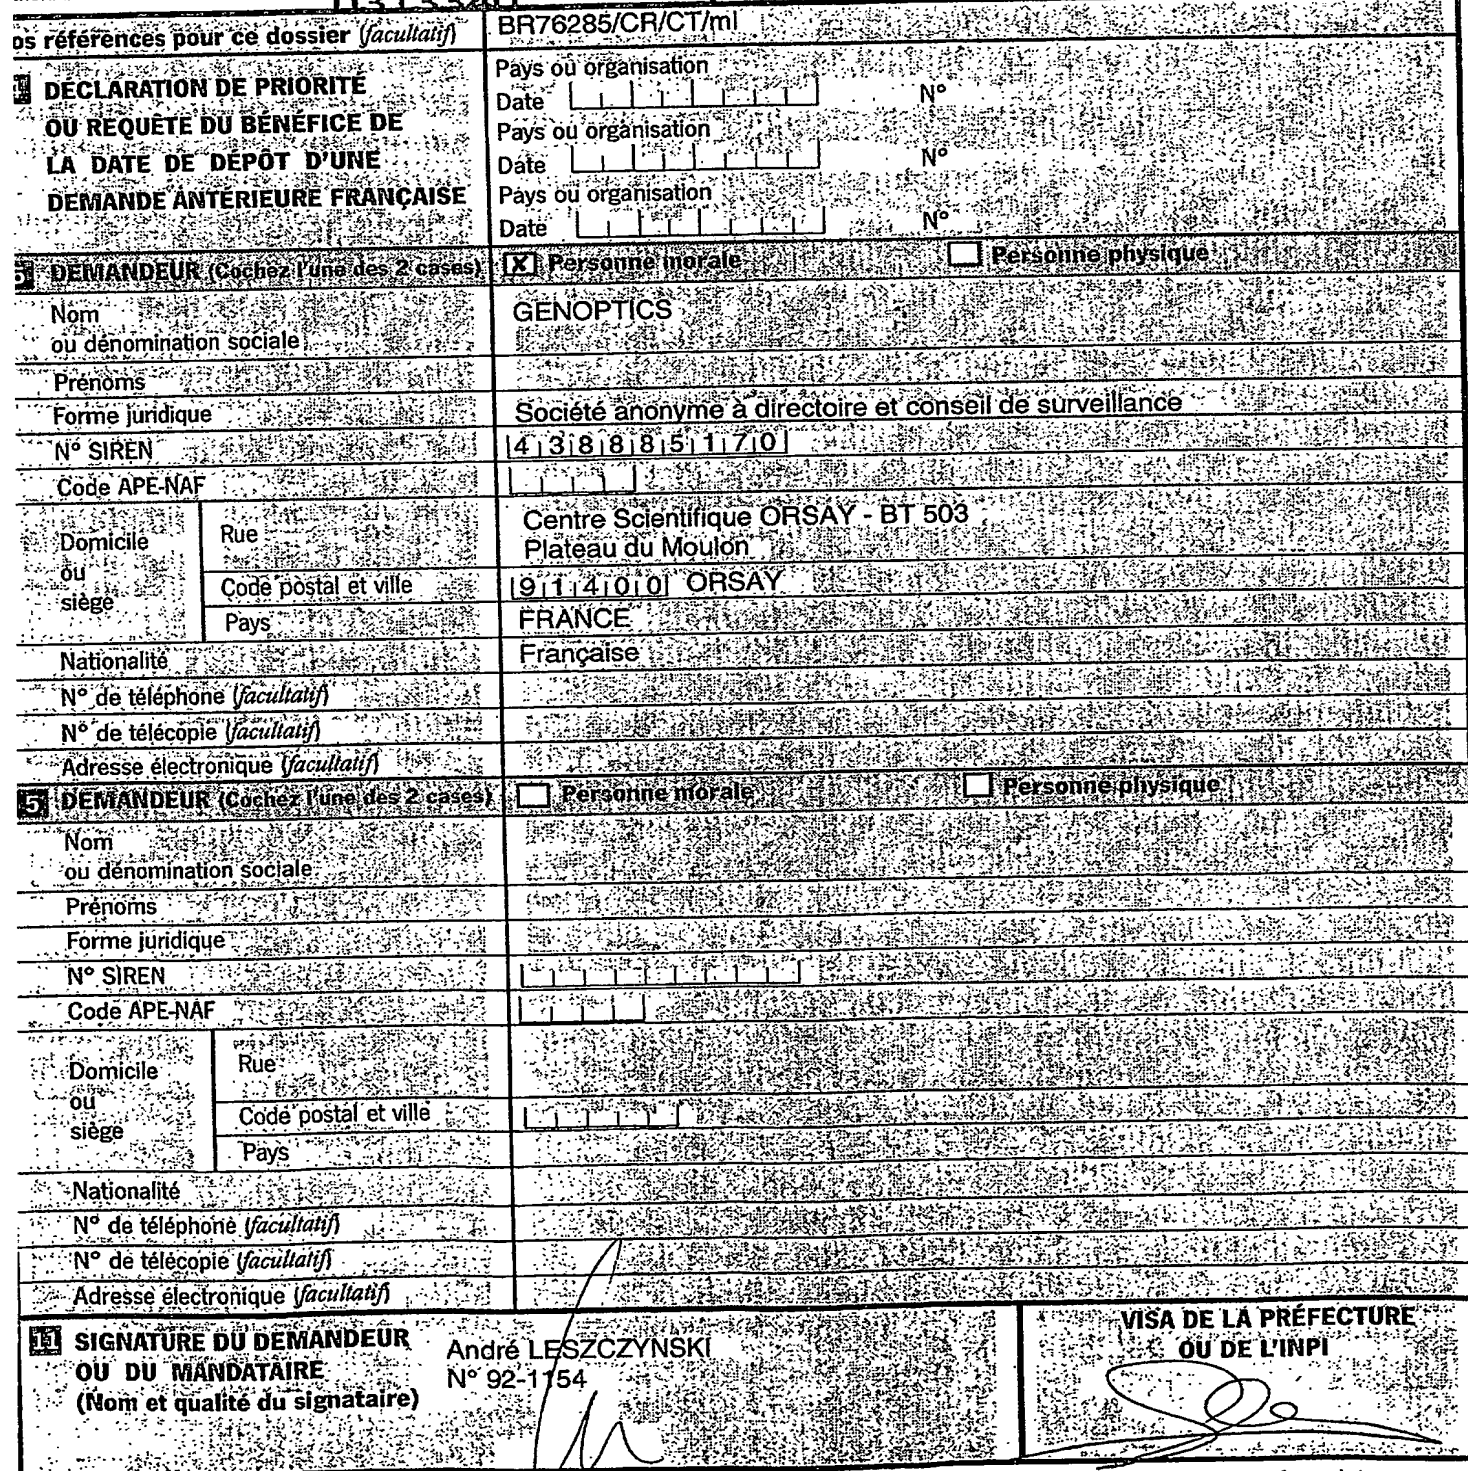 os références pour ce dossier (facultatif) BR76285/CR/CT/ml
DÉCLARATION DE PRIORITÉ
OU REQUÊTE DU BÉNÉFICE DE
LA DATE DE DÉPÔT D'UNE
DEMANDE ANTÉRIEURE FRANÇAISE
Pays ou organisation
Date N°
Pays ou organisation
Date N°
Pays ou organisation
Date N°
DEMANDEUR (Cochez l'une des 2 cases) X Personne morale Personne physique
Nom
ou dénomination sociale
GENOPTICS
Prénoms
Forme juridique Société anonyme à directoire et conseil de surveillance
N° SIREN 438885170
Code APE-NAF
Domicile
ou
siège
Rue Centre Scientifique ORSAY - BT 503
Plateau du Moulon
Code postal et ville 91400 ORSAY
Pays FRANCE
Nationalité Française
N° de téléphone (facultatif)
N° de télécopie (facultatif)
Adresse électronique (facultatif)
5 DEMANDEUR (Cochez l'une des 2 cases) Personne morale Personne physique
Nom
ou dénomination sociale
Prénoms
Forme juridique
N° SIREN
Code APE-NAF
Domicile
ou
siège
Rue
Code postal et ville
Pays
Nationalité
N° de téléphone (facultatif)
N° de télécopie (facultatif)
Adresse électronique (facultatif)
11 SIGNATURE DU DEMANDEUR
OU DU MANDATAIRE
(Nom et qualité du signataire)
André LESZCZYNSKI
N° 92-1154
VISA DE LA PRÉFECTURE
OU DE L'INPI